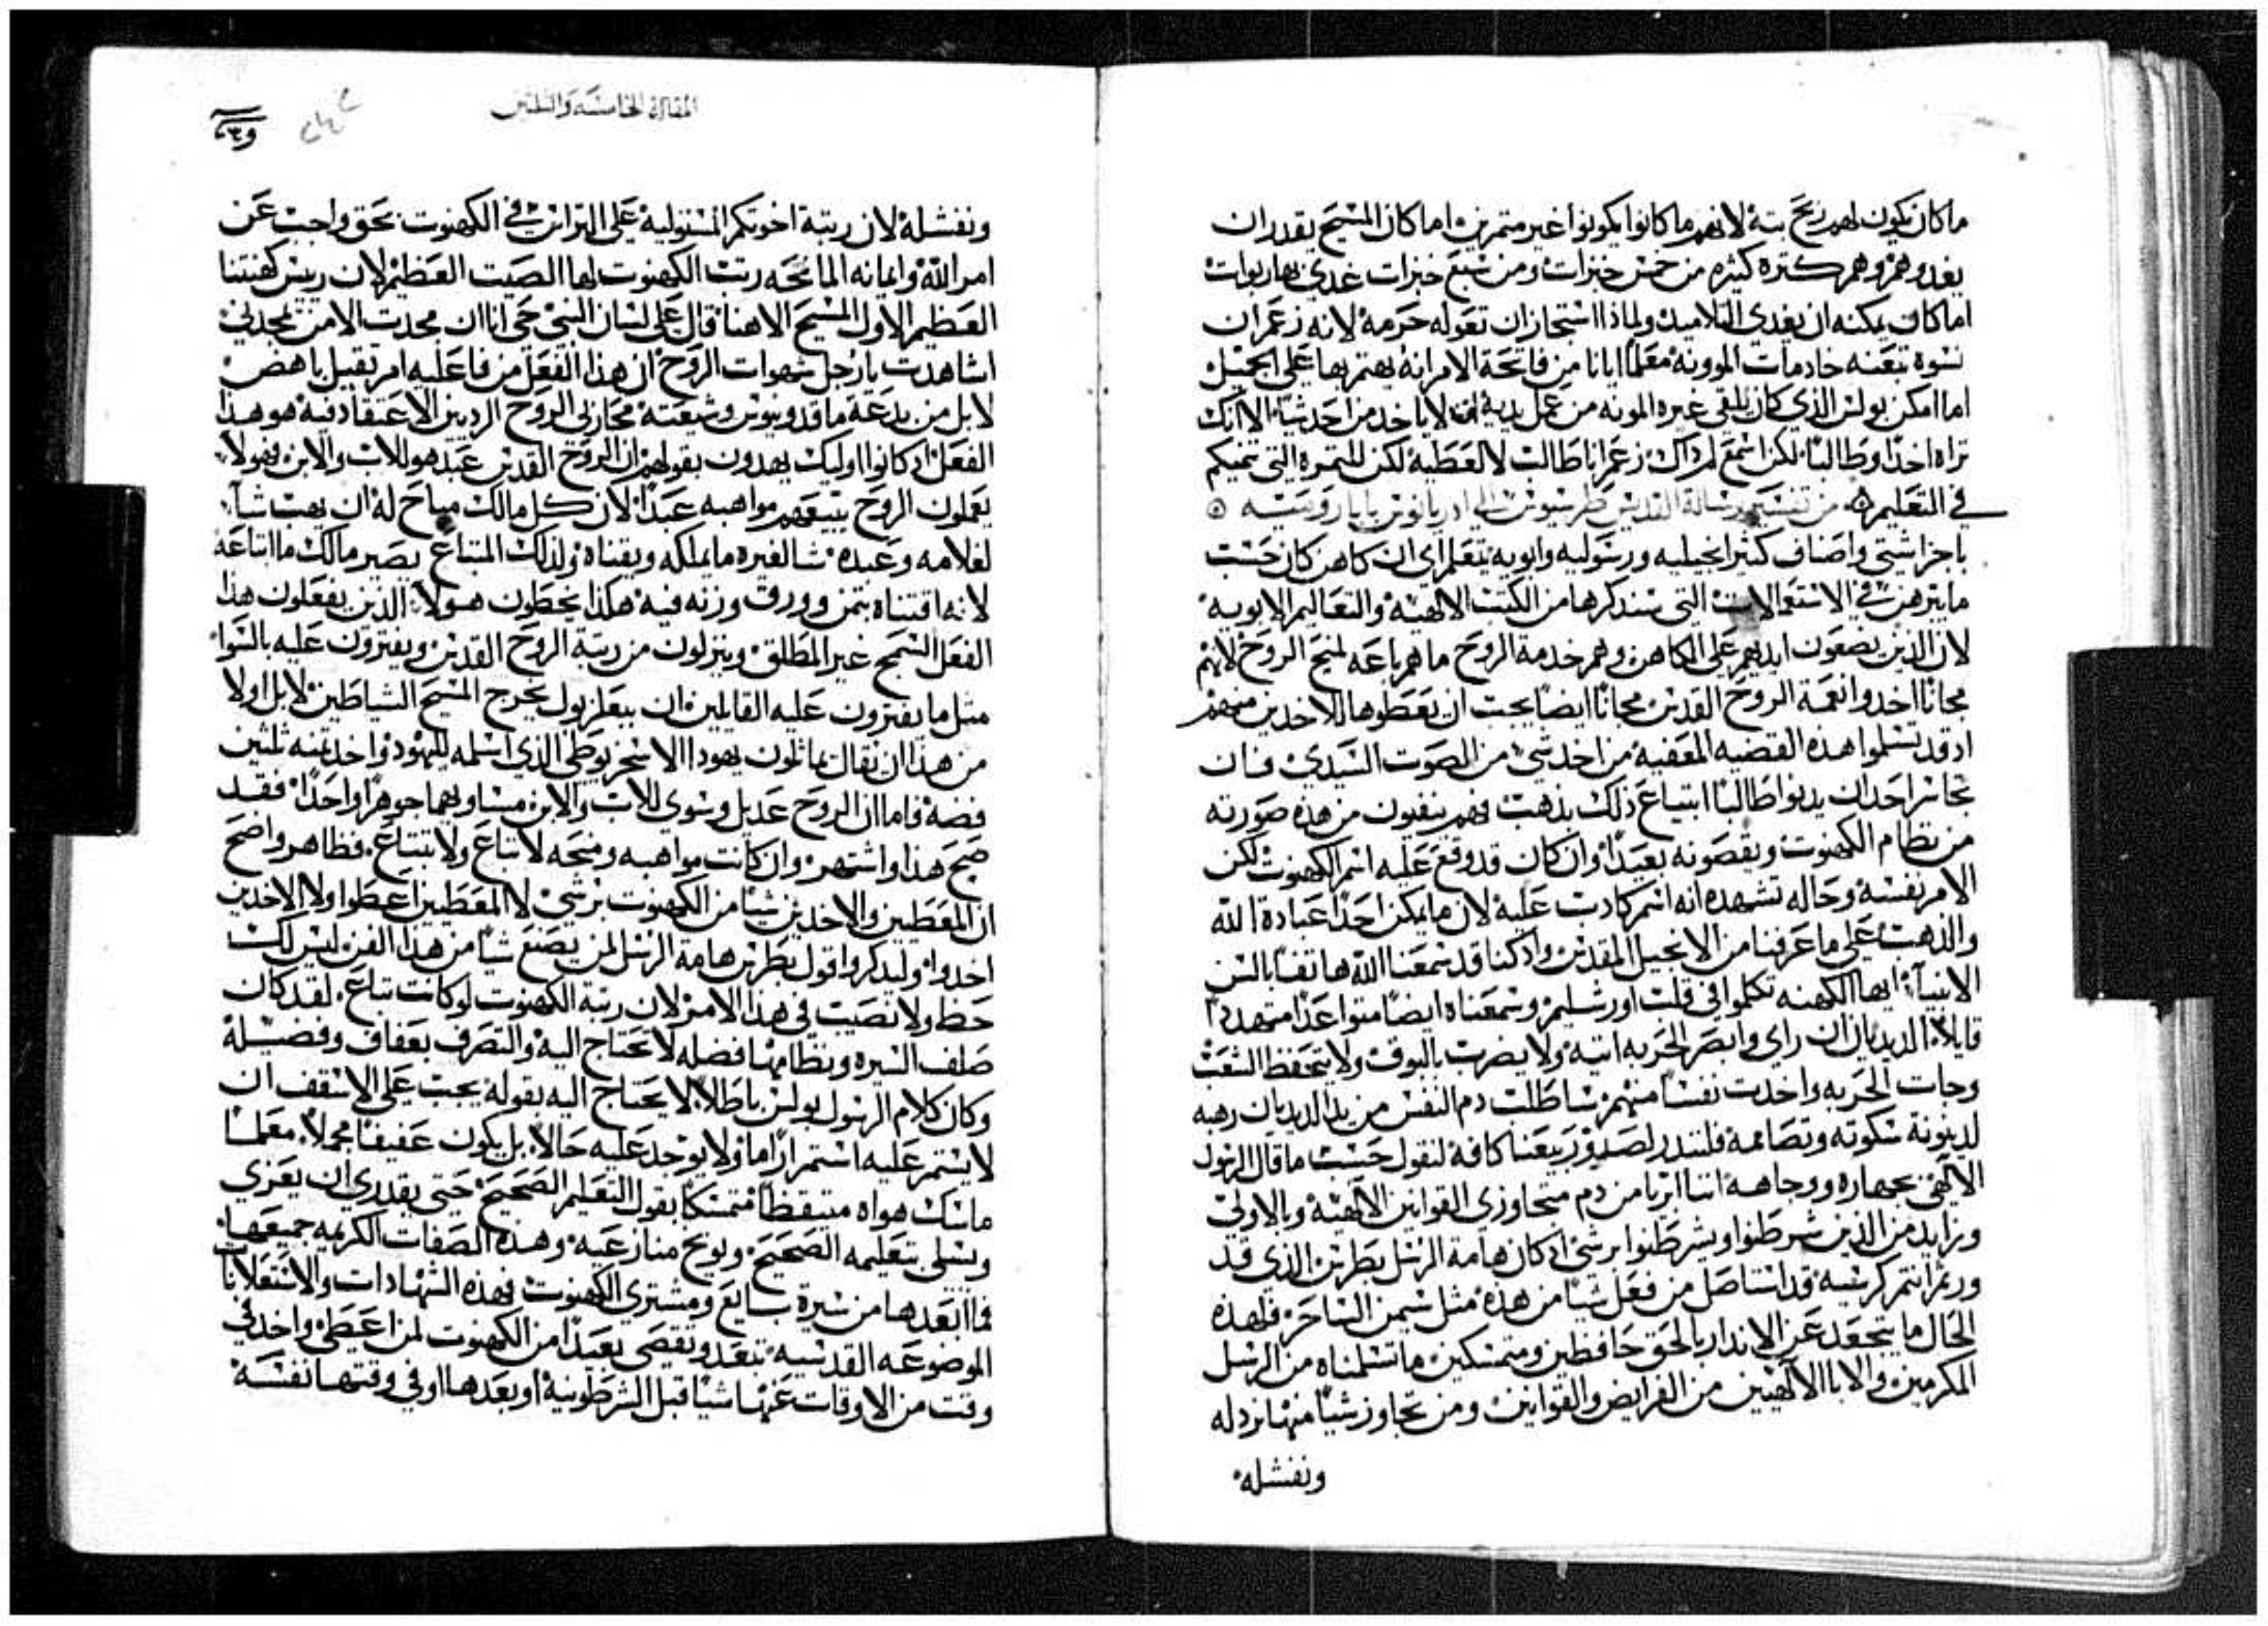 ما كان يكون لهم ربح بتة لانهم ما كانوا يكونوا غير متمرين اما كان المسيح يقدر ان
يغدوهم وهم كتره كثيره من خمس خبزات ومن سبع خبزات غدي بها ربوات
اما كان يمكنه ان يغدي التلاميد ولماذا استجاز ان تعوله حرمة لانه زعم ان
نسوة تبعنه خادمات الموونه معلما ايانا من فاتحة الامر انه يهتم بها على الجميل
اما امكن بولس الذي كان يلقي غيره المونه من عمل يديه ان لا ياخد من احد شيا الا انك
تراه اخدا وطالبا لكن اسمع لم داك زعم انا طالب لا لعطية لكن للتمره التي تنميكم
في التعليم من تفسير رسالة القديس طرسيوس الى ادريانوس بابا روميه
باجزا شتى واصناف كثيرا انجيليه ورسوليه وابويه يتعلم اى ان كاهن كان حسب
ما يترهن في الاستعمالات التي سندكرها من الكتب الالهيه والتعاليم الابويه
لان الذين يضعون ايديهم على الكاهن وهم خدمة الروح ما هم باعه لمنح الروح لانهم
مجانا اخدوا نعمة الروح القدس مجانا ايضا يجب ان يعطوها للاخدين منهم
اد قد تسلموا هذه القضيه المعفيه من اخد شي من الصوت السيدي فان
تجاسر احد ان يدنوا طالبا ابتياع ذلك بذهب فهم ينفيون من هذه صورته
من نظام الكهنوت ويقصونه بعيدا وان كان قد وقع عليه اسم الكهنوت لكن
الامر نفسه وحاله تشهد انه اسم كادب عليه لان ما يمكن احدا عبادة الله
والذهب على ما عرفنا من الانجيل المقدس واد كنا قد سمعنا الله هاتفا بالسن
الانبياء ايها الكهنه تكلموا في قلب اورشليم وسمعناه ايضا متواعدا متهددا
قايلا الديدبان ان راى وابصر الحربه اتيه ولا يضرب بالبوق ولا يتحفظ الشعب
وجات الحربه واخدت نفسا منهم ساطلب دم النفس من يد الديدبان رهبه
لدينونة سكوته وتصاممه فلتندر لصد وربيعنا كافة لنقول حسب ما قال الرسول
الالهي بجهاره ووجاهه اننا ابريا من دم متجاوزي القوانين الالهيه وبالاولي
وزايد من الذين شرطنوا ويشرطنوا برشي اد كان هامة الرسل بطرس الذي قد
ورثم انتم كرسيه قد استاصل من فعل شيا من هذه مثل سيمن الساحر فلهذه
الحال ما يتجعد عن الاندار بالحق حافظين ومتمسكين ما تسلمناه من الرسل
المكرمين والابا الالهيين من الفرايض والقوانين ومن تجاوز شيا منها نردله
ونفشله
المقالة الخامسه والثلثين
ونفشله لان رتبة اخوتكم المستوليه على التراس في الكهنوت بحق واجب عن
امر الله وايمانه المانحه رتب الكهنوت لها الصيت العظيم لان رييس كهنتنا
العظيم الاول المسيح الاهنا قال على لسان النبي حي انا ان مجدت الا من يمجدني
اشاهدت يا رجل شهوات الروح ان هذا الفعل من فاعليه امر ثقيل باهض
لا بل من بدعة ماقدونيوس وشيعته محاربي الروح الرديين الاعتقاد فيه هو هذا
الفعل اد كانوا اوليك يهدون بقولهم ان الروح القدس عبد هو للاب والابن وهولاء
يعملون الروح ببيعهم مواهبه عبدا لان كل مالك مباح له ان يهب شا
لغلامه وعبده شا لغيره ما يملكه ويقناه ولذلك المبتاع يصير مالك ما ابتاعه
لانه اقتناه بثمن وورق وزنه فيه هكذا يخطون هولاء الذين يفعلون هذا
الفعل السمج غير المطلق وينزلون من رتبة الروح القدس ويفترون عليه بالسوا
مثل ما يفترون عليه القايلين ان ببعلزبول يخرج المسيح الشياطين لا بل اولا
من هذا ان يقال يماثلون يهودا الاسخريوطي الذي اسلمه لليهود واخد ثمنه ثلثين
فضه فاما ان الروح عديل وسوي للاب والابن مساويهما جوهرا واحدا فقد
صح هذا واشتهر وان كانت مواهبه ومنحه لا تباع ولا تبتاع فظاهر واضح
ان المعطيين والاخدين شيا من الكهنوت برشي لا المعطيين اعطوا ولا الاخدين
اخدوا وليدكروا قول بطرس هامة الرسل لمن يصنع شيا من هذا الفن ليس لك
حظ ولا نصيب في هذا الامر لان رتبة الكهنوت لو كانت تباع لقد كان
صلف السيره ونظامها فضله لا يحتاج اليه والتصرف بعفاف وفضيلة
وكان كلام الرسول بولس باطلا لا يحتاج اليه بقوله يجب على الاسقف ان
لا يستمر عليه استمرارا ما ولا يوجد عليه حالا بل يكون عفيفا محملا معلما
ماسك هواه متيقظا متمسكا بقول التعليم الصحيح حتى يقدر ى ان يعزي
ويسلي بتعليمه الصحيح ويوبخ منازعيه وهذه الصفات الكريمه جميعها
فما ابعدها من سيرة بايع ومشتري الكهنوت فهذه الشهادات والاستعلانات
الموضوعه القدسيه تبعد وتقصى بعيدا من الكهنوت لمن اعطى واخد في
وقت من الاوقات عنها شيا قبل الشرطونيه او بعدها او في وقتها نفسه